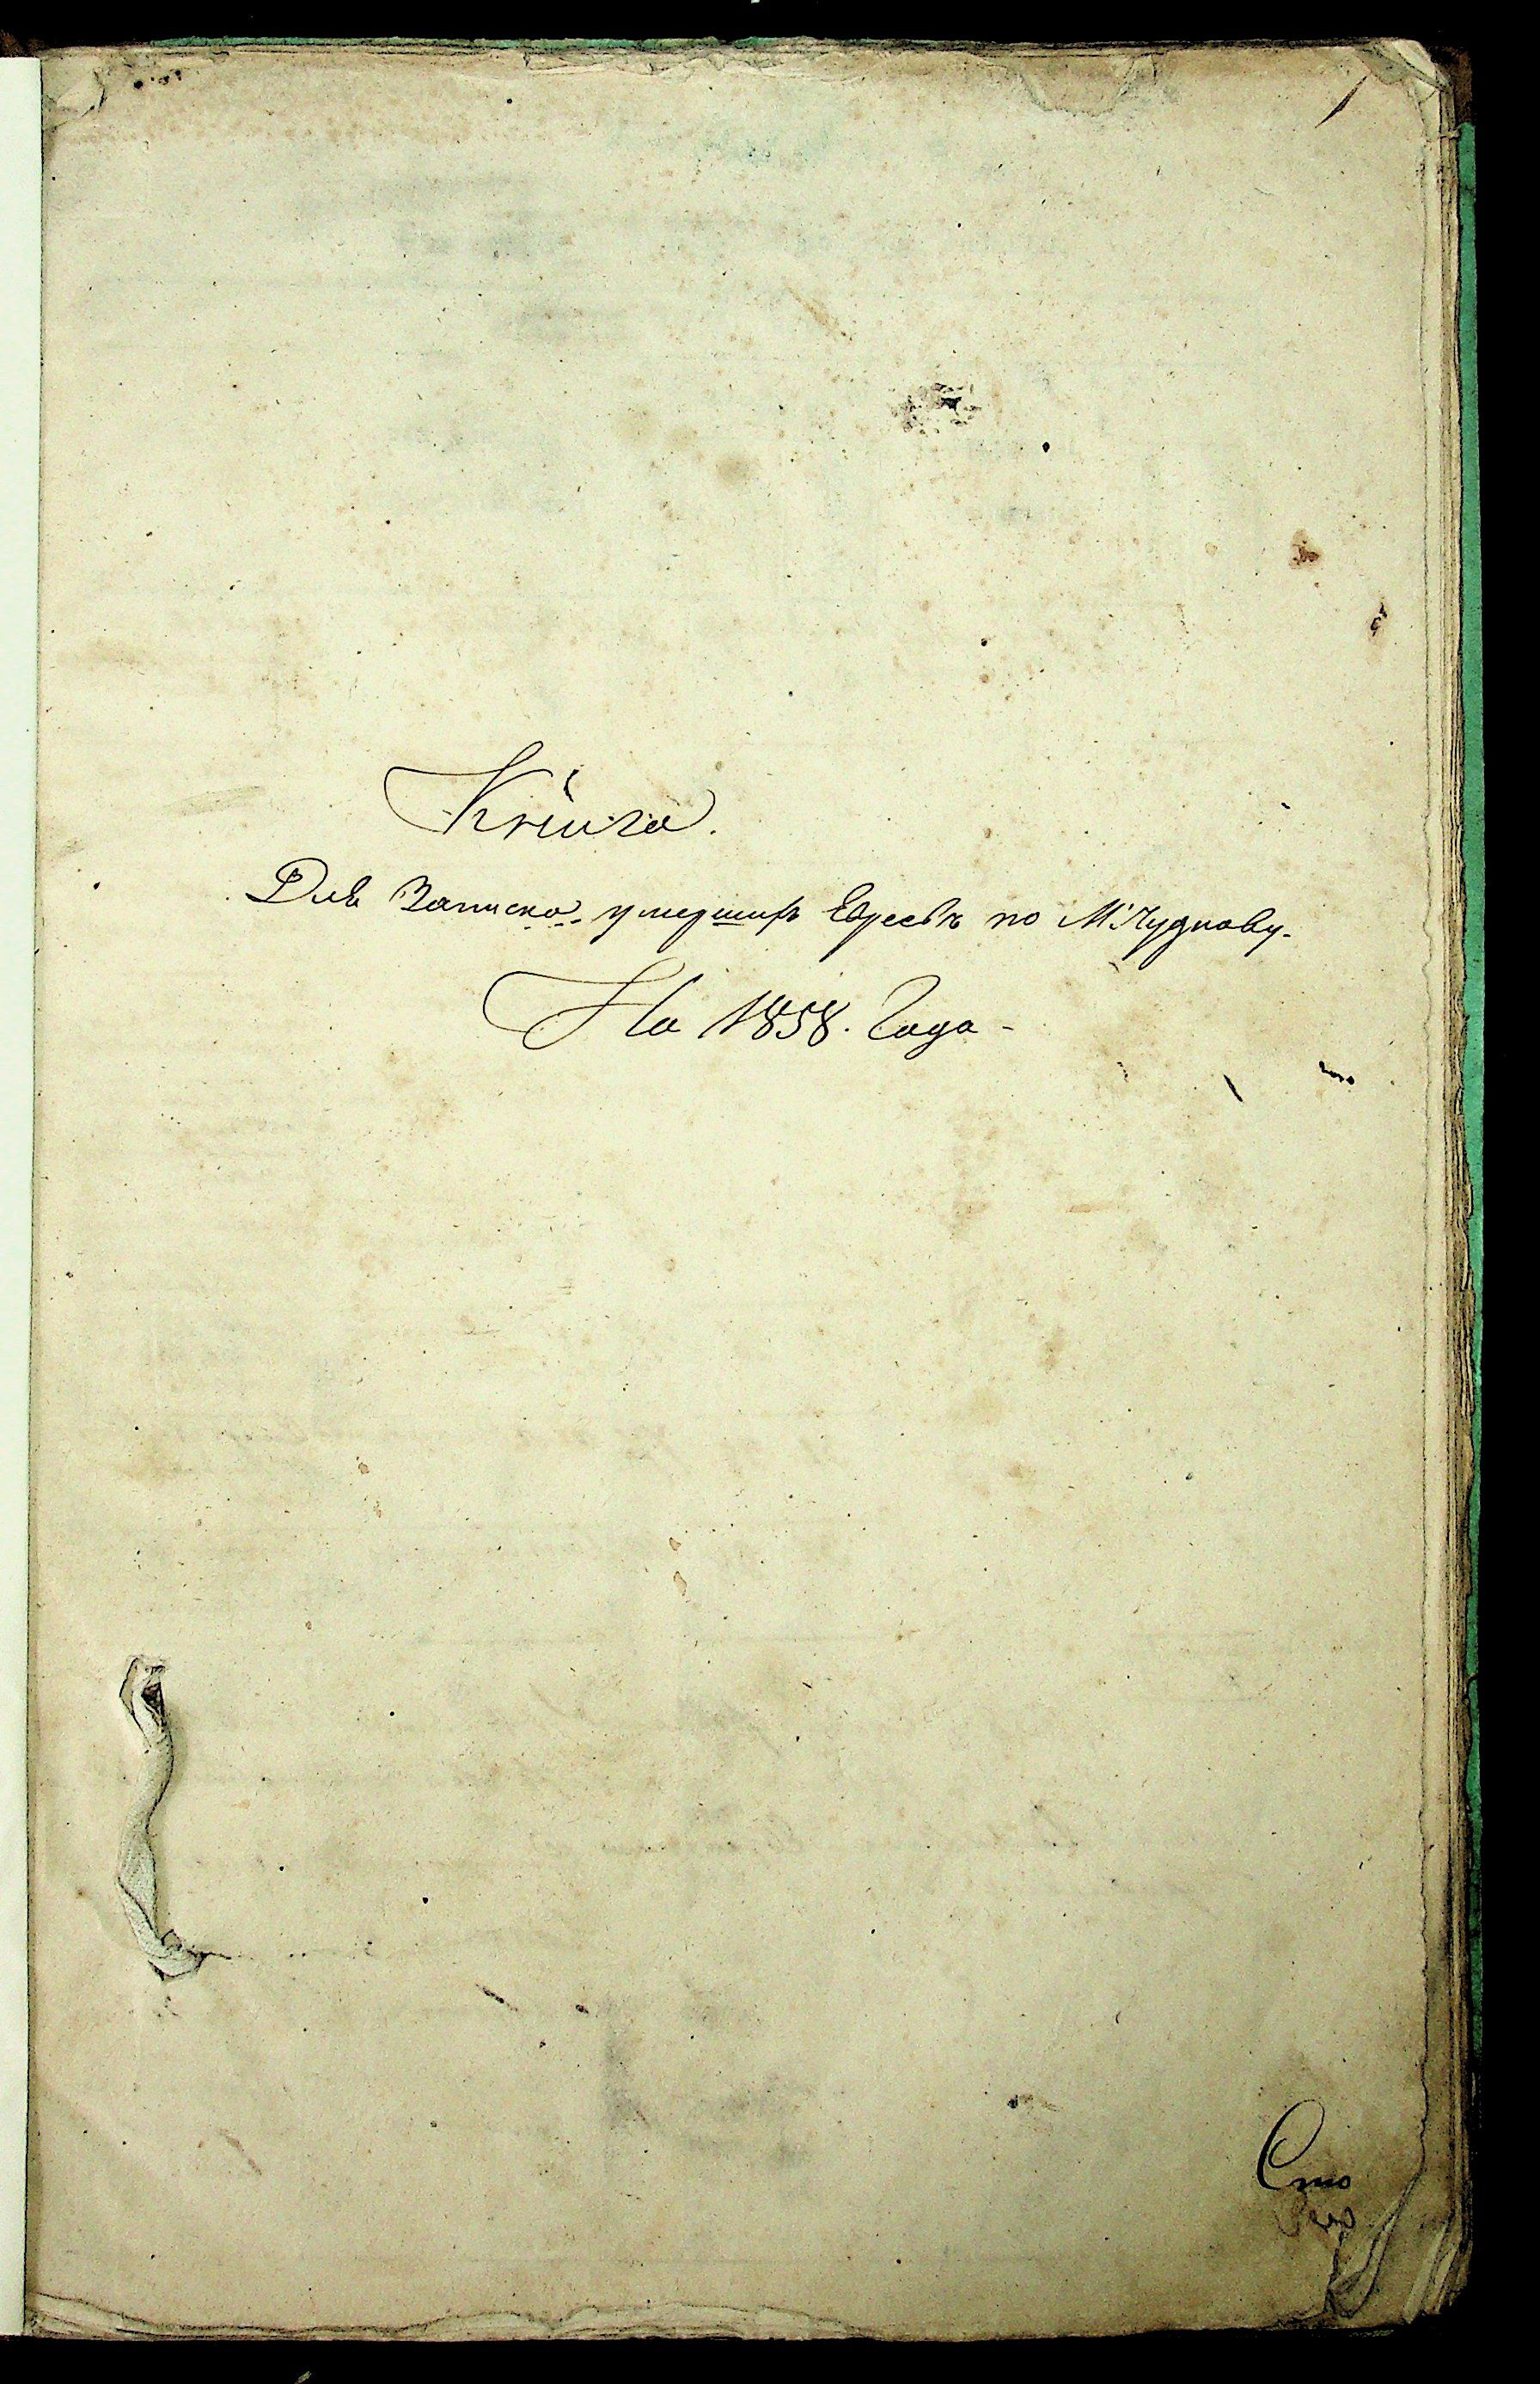 Книга.
Для Записка умершихъ Евреевъ по М. Чуднову.
На 1858. Года -
Сто